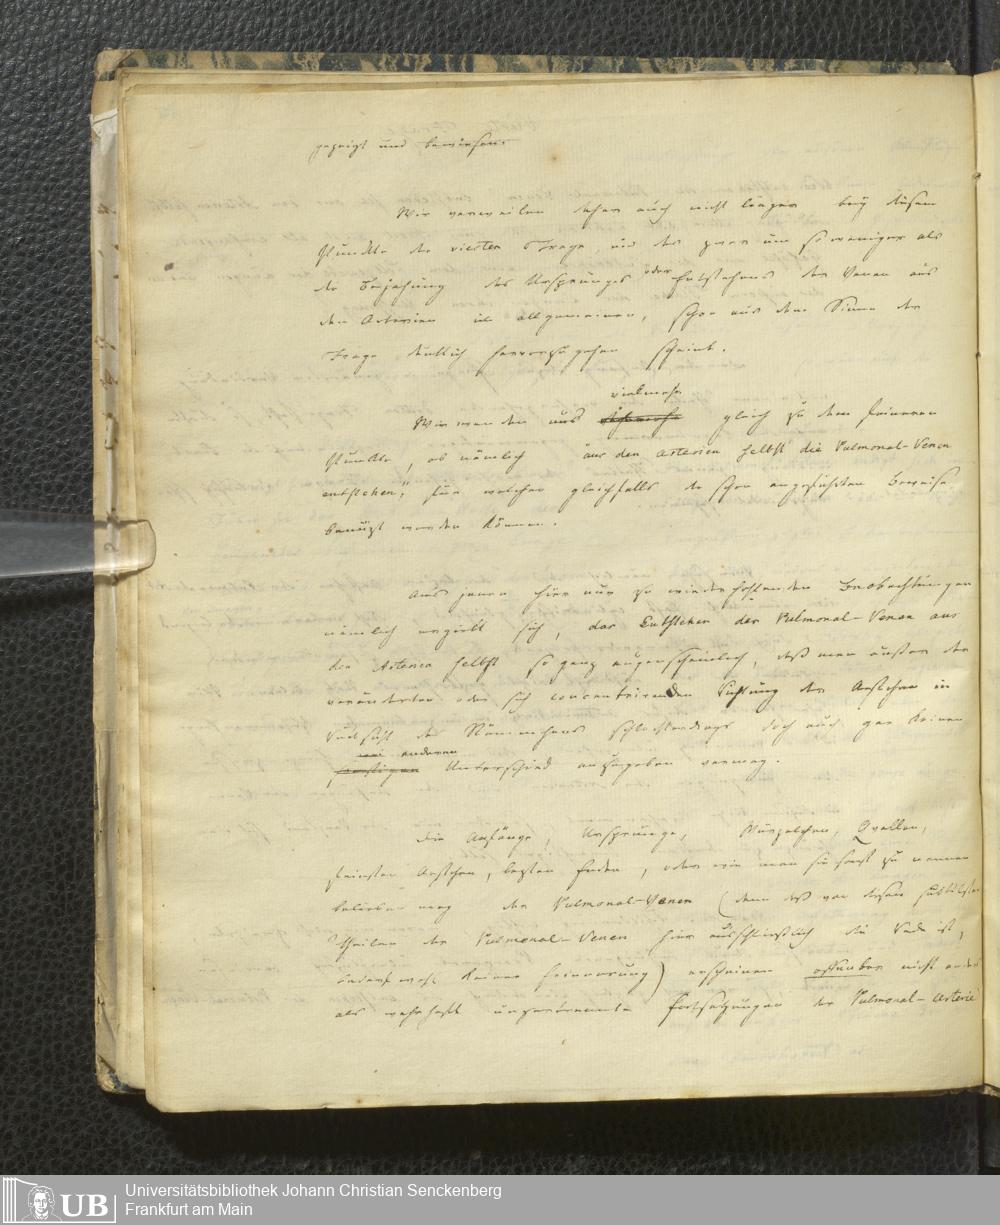 gezeigt und bewiesen.
Wir verweilen daher auch nicht länger bey diesem
Punkte der vierten Frage und das zwar um so weniger als
die Bejahung des Ursprungs oder Entstehens der Venen aus
den Arterien im allgemeinen, schon aus dem Sinne der
Frage deutlich hervorzugehen scheint.
vielmehr
Wir wenden uns gleich zu dem feineren
Punkte, ob nämlich "aus den Arterien selbst die Pulmonal-Venen
entstehen," für welchen gleichfalls die schon angeführten Beweise
benüzt werden können.
Aus jenen hier nur zu wiederhohlenden Beobachtungen
nämlich ergiebt sich, das Entstehen der Pulmonal-Venen aus
den Arterien selbst so ganz augenscheinlich, daß man außer der
veränderten oder sich concentrirenden Richtung der Aestchen in
Rücksicht des Stämmchens schlechterdings doch auch gar keinen
anderen
Unterschied anzugeben vermag.
Die Anfänge, Ursprünge, Würzelchen, Quellen,
feinsten Aestchen, lezten Enden, oder wie man sie sonst zu nennen
belieben mag der Pulmonal-Venen (denn daß von diesen subtilsten
Theilen der Pulmonal-Venen hier ausschließlich die Rede ist,
bedarf wohl keiner Erinnerung) erscheinen offenbar nicht anders
als wahrhaft ungetrennte Fortsetzungen der Pulmonal-Arterie
UB
Universitätsbibliothek Johann Christian Senckenberg
Frankfurt am Main